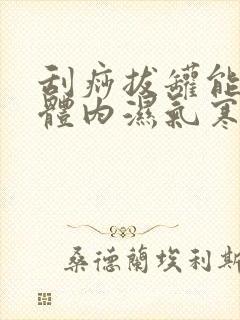 刮痧拔罐能
體內濕氣寒
桑德蘭埃利斯